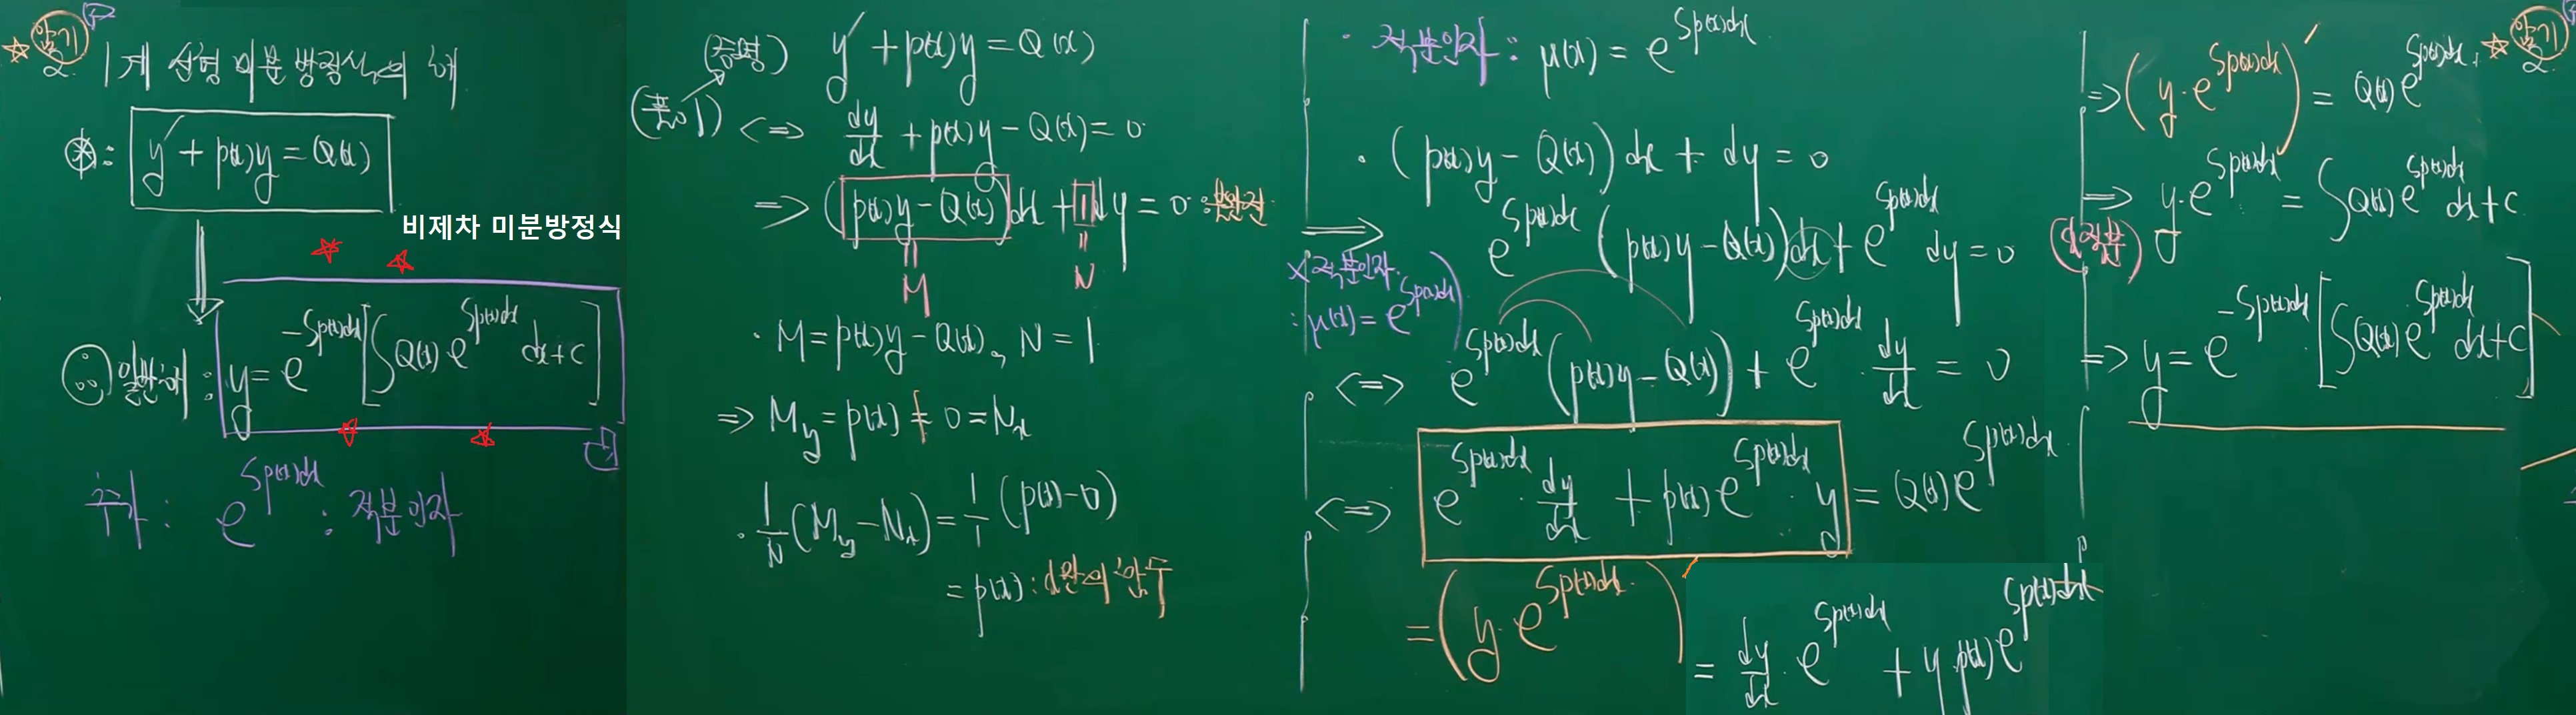 ☆ 암기 2. 1계 선형 미분 방정식의 해
⊛: y' + p(x)y = Q(x)
비제차 미분방정식
일반해: y = e^{-∫p(x)dx} [∫Q(x) e^{∫p(x)dx} dx + c]
추가: e^{∫p(x)dx} : 적분인자
(증명) y' + p(x)y = Q(x)
(풀이) <=> dy/dx + p(x)y - Q(x) = 0
=> (p(x)y - Q(x))dx + 1dy = 0 : 불완전
M N
· M = p(x)y - Q(x), N = 1
=> M_y = p(x) ≠ 0 = N_x
· 1/N (M_y - N_x) = 1/1 (p(x) - 0)
= p(x) : x만의 함수
· 적분인자: μ(x) = e^{∫p(x)dx}
· (p(x)y - Q(x))dx + dy = 0
=> e^{∫p(x)dx} (p(x)y - Q(x))dx + e^{∫p(x)dx} dy = 0
x적분인자
: μ(x) = e^{∫p(x)dx}
<=> e^{∫p(x)dx} (p(x)y - Q(x)) + e^{∫p(x)dx} · dy/dx = 0
<=> e^{∫p(x)dx} · dy/dx + p(x)e^{∫p(x)dx} · y = Q(x)e^{∫p(x)dx}
= (y · e^{∫p(x)dx})'
= dy/dx · e^{∫p(x)dx} + y · p(x)e^{∫p(x)dx}
=> (y · e^{∫p(x)dx})' = Q(x)e^{∫p(x)dx}
☆ 암기 2.
=> y · e^{∫p(x)dx} = ∫Q(x)e^{∫p(x)dx} dx + c
(x적분)
=> y = e^{-∫p(x)dx} · [∫Q(x)e^{∫p(x)dx} dx + c]